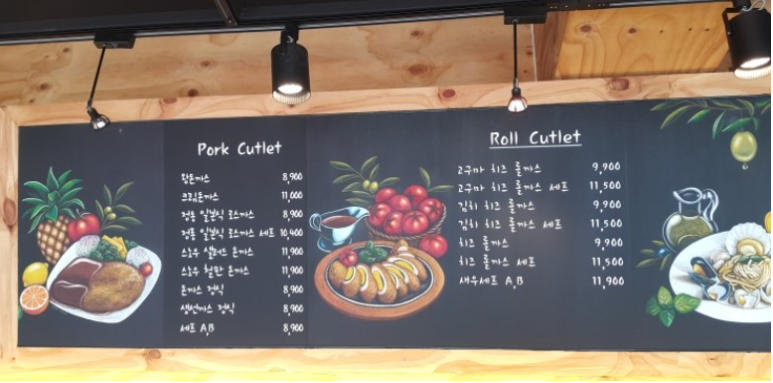 Pork Cutlet
왕돈까스 8,900
크림돈까스 11,000
정통 일본식 로스까스 8,900
정통 일본식 로스까스 세프 10,400
스노우 샐러드 돈까스 11,900
스노우 철판 돈까스 11,900
돈까스 정식 8,900
생선까스 정식 8,900
세프 A,B 8,900
Roll Cutlet
고구마 치즈 롤까스 9,900
고구마 치즈 롤까스 세프 11,500
김치 치즈 롤까스 9,900
김치 치즈 롤까스 세프 11,500
치즈 롤까스 9,900
치즈 롤까스 세프 11,500
새우세프 A,B 11,900